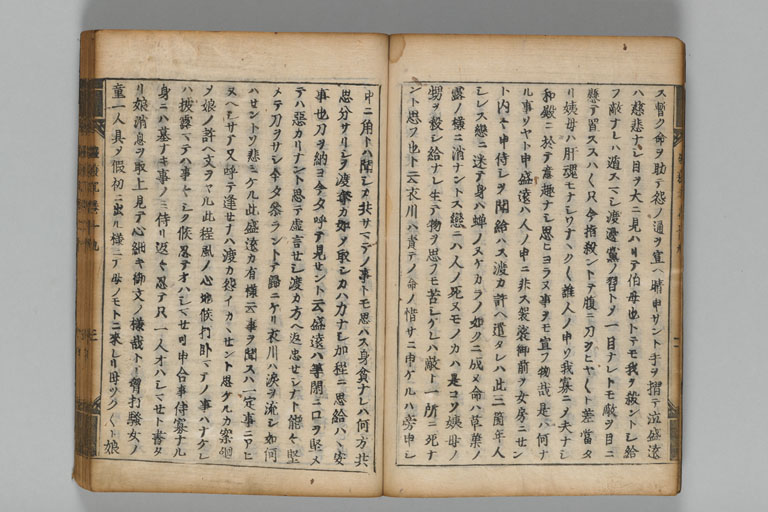 ス暫ク命ヲ助テ怨ノ通ヲ宣ヘ晴申サント手ヲ摺テ泣盛遠
ハ慈悲ナシ目ヲ大ニ見ハリテ伯母也トテモ我ヲ殺ントシ給
フ敵ナレハ遁スマシ渡邊黨ノ習トメ一目ナレトモ敵ヲ目ニ
懸テ置ススハ〱只今指殺ントテ腹ニ刀ヲヒヤ〱ト差當タ
リ姨母ハ肝魂モナシワナヽク〱誰人ノ申ソ我寡ニメ夫ナシ
和殿ニ於テ意趣ナシ思ヒヨラヌ事ヲモ宣フ物哉是ハ何ナ
ル事ソヤト申盛遠ハ人ノ申ニ非ス袈裟御前ヲ女房ニセン
ト内々申侍シヲ聞給ハス渡カ許ヘ遣タレハ此三箇年人
シレス戀ニ迷テ身ハ蝉ノヌケカラノ如クニ成ヌ命ハ草葉ノ
露ノ様ニ消ナントス戀ニハ人ノ死ヌモノカハ是コソ姨母ノ
甥ヲ殺シ給ナレ生テ物ヲ思フモ苦シケレハ敵ト一所ニ死ナ
ント思フ也ト云衣川ハ責テノ命ノ惜サニ申ケルハ旁申シ
中ニ角トハ聞シカ共サマテノ事トモ思ハス身貧ナレハ何方共
思分サリシヲ渡奪カ如ク取シカハ力ナシ加程ニ思給ハヽ安
事也刀ヲ納ヨ今夕呼テ見セント云盛遠ハ等閑ニ口ヲ堅メ
テハ惡カリナント思テ虚言セシ渡カ方ヘ返忠セシナト能々堅
メテ刀ヲサシ今夕參ラントテ歸ニケリ衣川ハ涙ヲ流シ如何
ハセントソ悲ミケル此盛遠カ有様云事ヲ聞スハ一定事ニアヒ
ヌヘシサテ又呼テ逢セナハ渡カ怨イカヽセント思ケルカ案廻
メ娘ノ許ヘ文ヲヤル此程風ノ心地候打臥マテノ事ハナケレ
ハ披露マテハ事々シク候忍テオハシマセ可申合事侍寡ナル
身ニハ墓ナキ事ノミ侍リ返々忍テ只一人オハシマセト書タ
リ娘消息ヲ取上見テ心細キ御文ノ様哉トテ胸打騒女ノ
童一人具メ假初ニ出ル様ニテ母ノモトニ來レリ母ツク〱ト娘